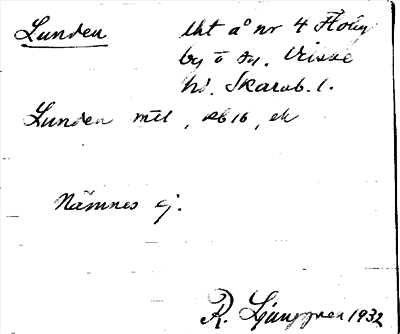 Lunden
lht å nr 4 Floby
by o sn. Vilske
hd. Skarab. l.
Lunden mtl, eb 16, ek
Nämnes ej.
R. Ljunggren 1932